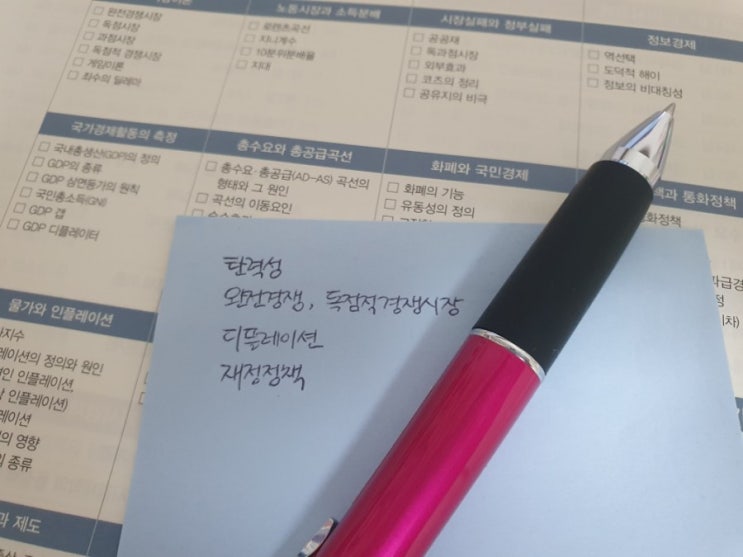 노동시장과 소득분배
시장실패와 정부실패
정보경제
□ 완전경쟁시장
□ 독점시장
□ 과점시장
□ 독점적 경쟁시장
□ 게임이론
□ 죄수의 딜레마
□ 로렌츠곡선
□ 지니계수
□ 10분위분배율
□ 지대
□ 공공재
□ 독과점시장
□ 외부효과
□ 코즈의 정리
□ 공유지의 비극
□ 역선택
□ 도덕적 해이
□ 정보의 비대칭성
국가경제활동의 측정
총수요와 총공급곡선
화폐와 국민경제
통화정책
□ 국내총생산(GDP)의 정의
□ GDP의 종류
□ GDP 삼면등가의 원칙
□ 국민총소득(GNI)
□ GDP 갭
□ GDP 디플레이터
□ 총수요·총공급(AD-AS) 곡선의
형태와 그 원인
□ 곡선의 이동요인
□ 화폐의 기능
□ 유동성의 정의
물가와 인플레이션
정의와 원인
인플레이션,
인플레이션)
영향
종류
제도
탄력성
완전경쟁, 독점적경쟁시장
디플레이션
재정정책